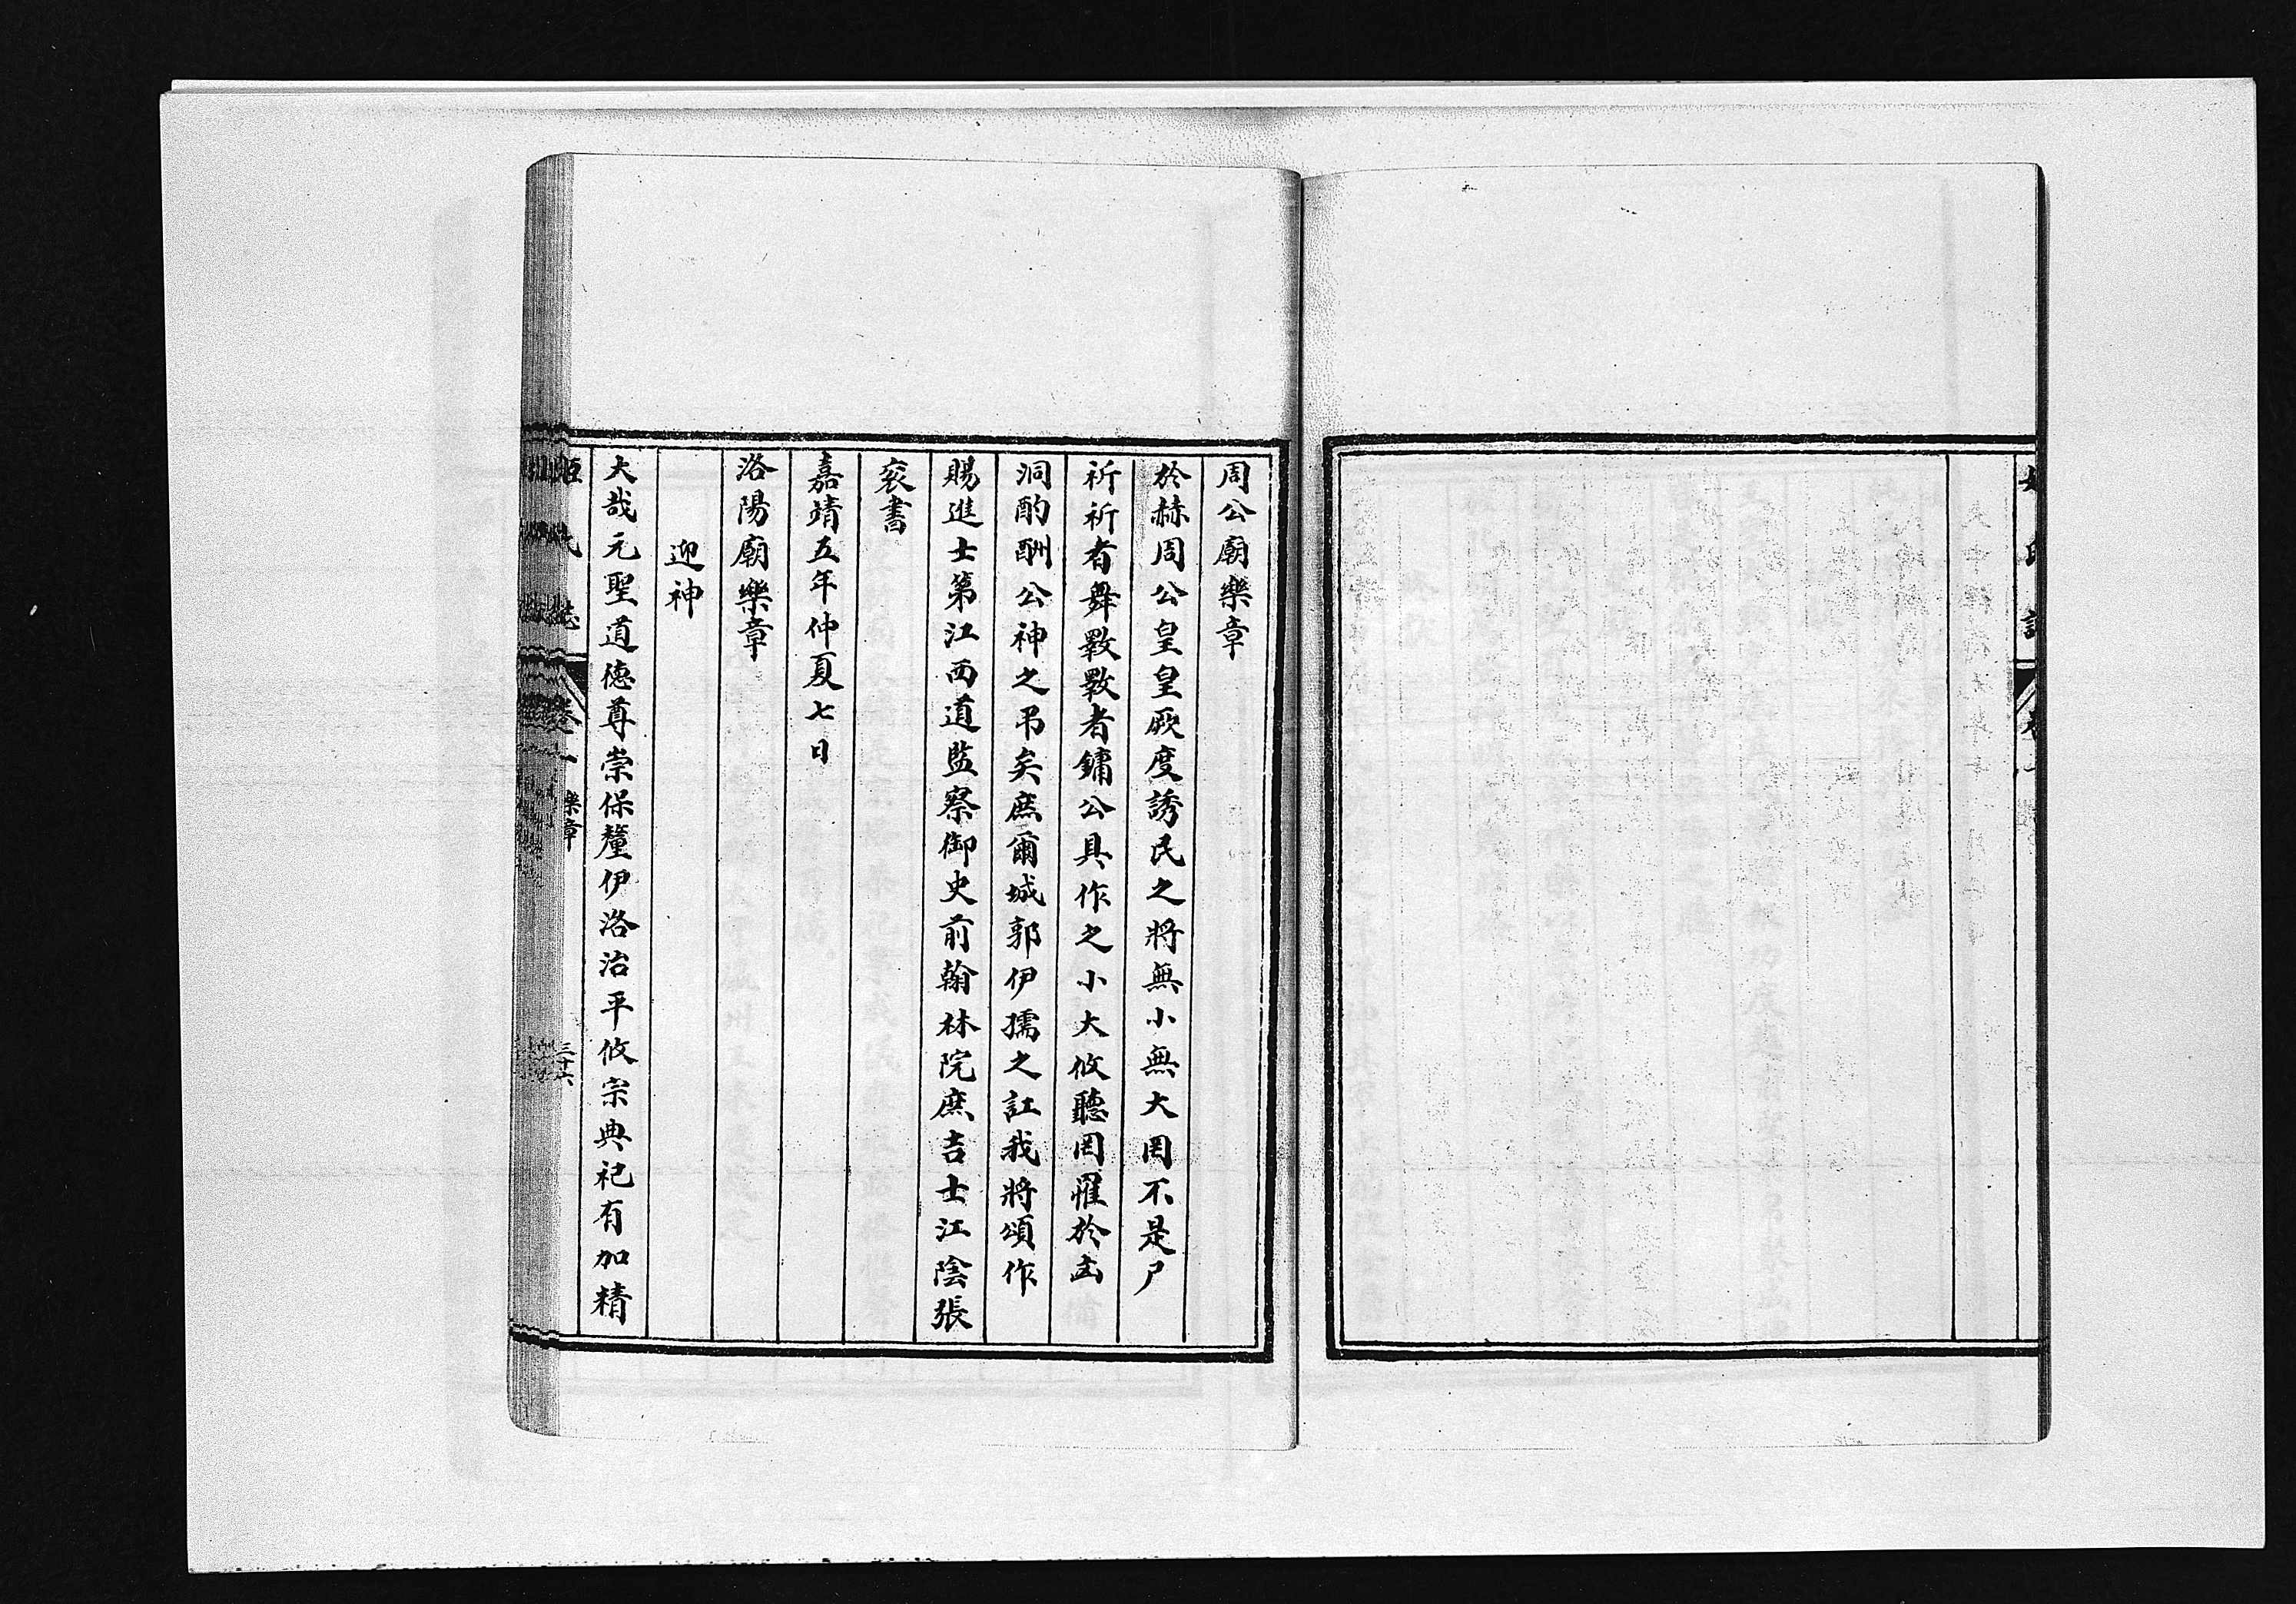 周公廟樂章
於赫周公皇皇厥度誘民之將無小無大罔不是尸
祈祈者舞斁斁者鏞公具作之小大攸聽罔罹於
洞酌酬公神之弔矣庶爾城郭伊孺之訌我將頌作
賜進士第江西道監察御史前翰林院庶吉士江陰張
袞書
嘉靖五年仲夏七日
洛陽廟樂章
迎神
大哉元聖道德尊崇保釐伊洛治平攸宗典祀有加精
姬氏誌 卷一 樂章 三十六